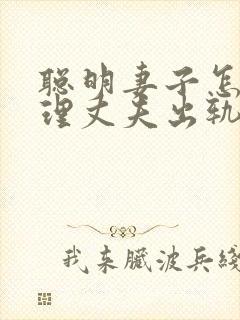 聪明妻子怎
理丈夫出轨
我来臓波兵綫